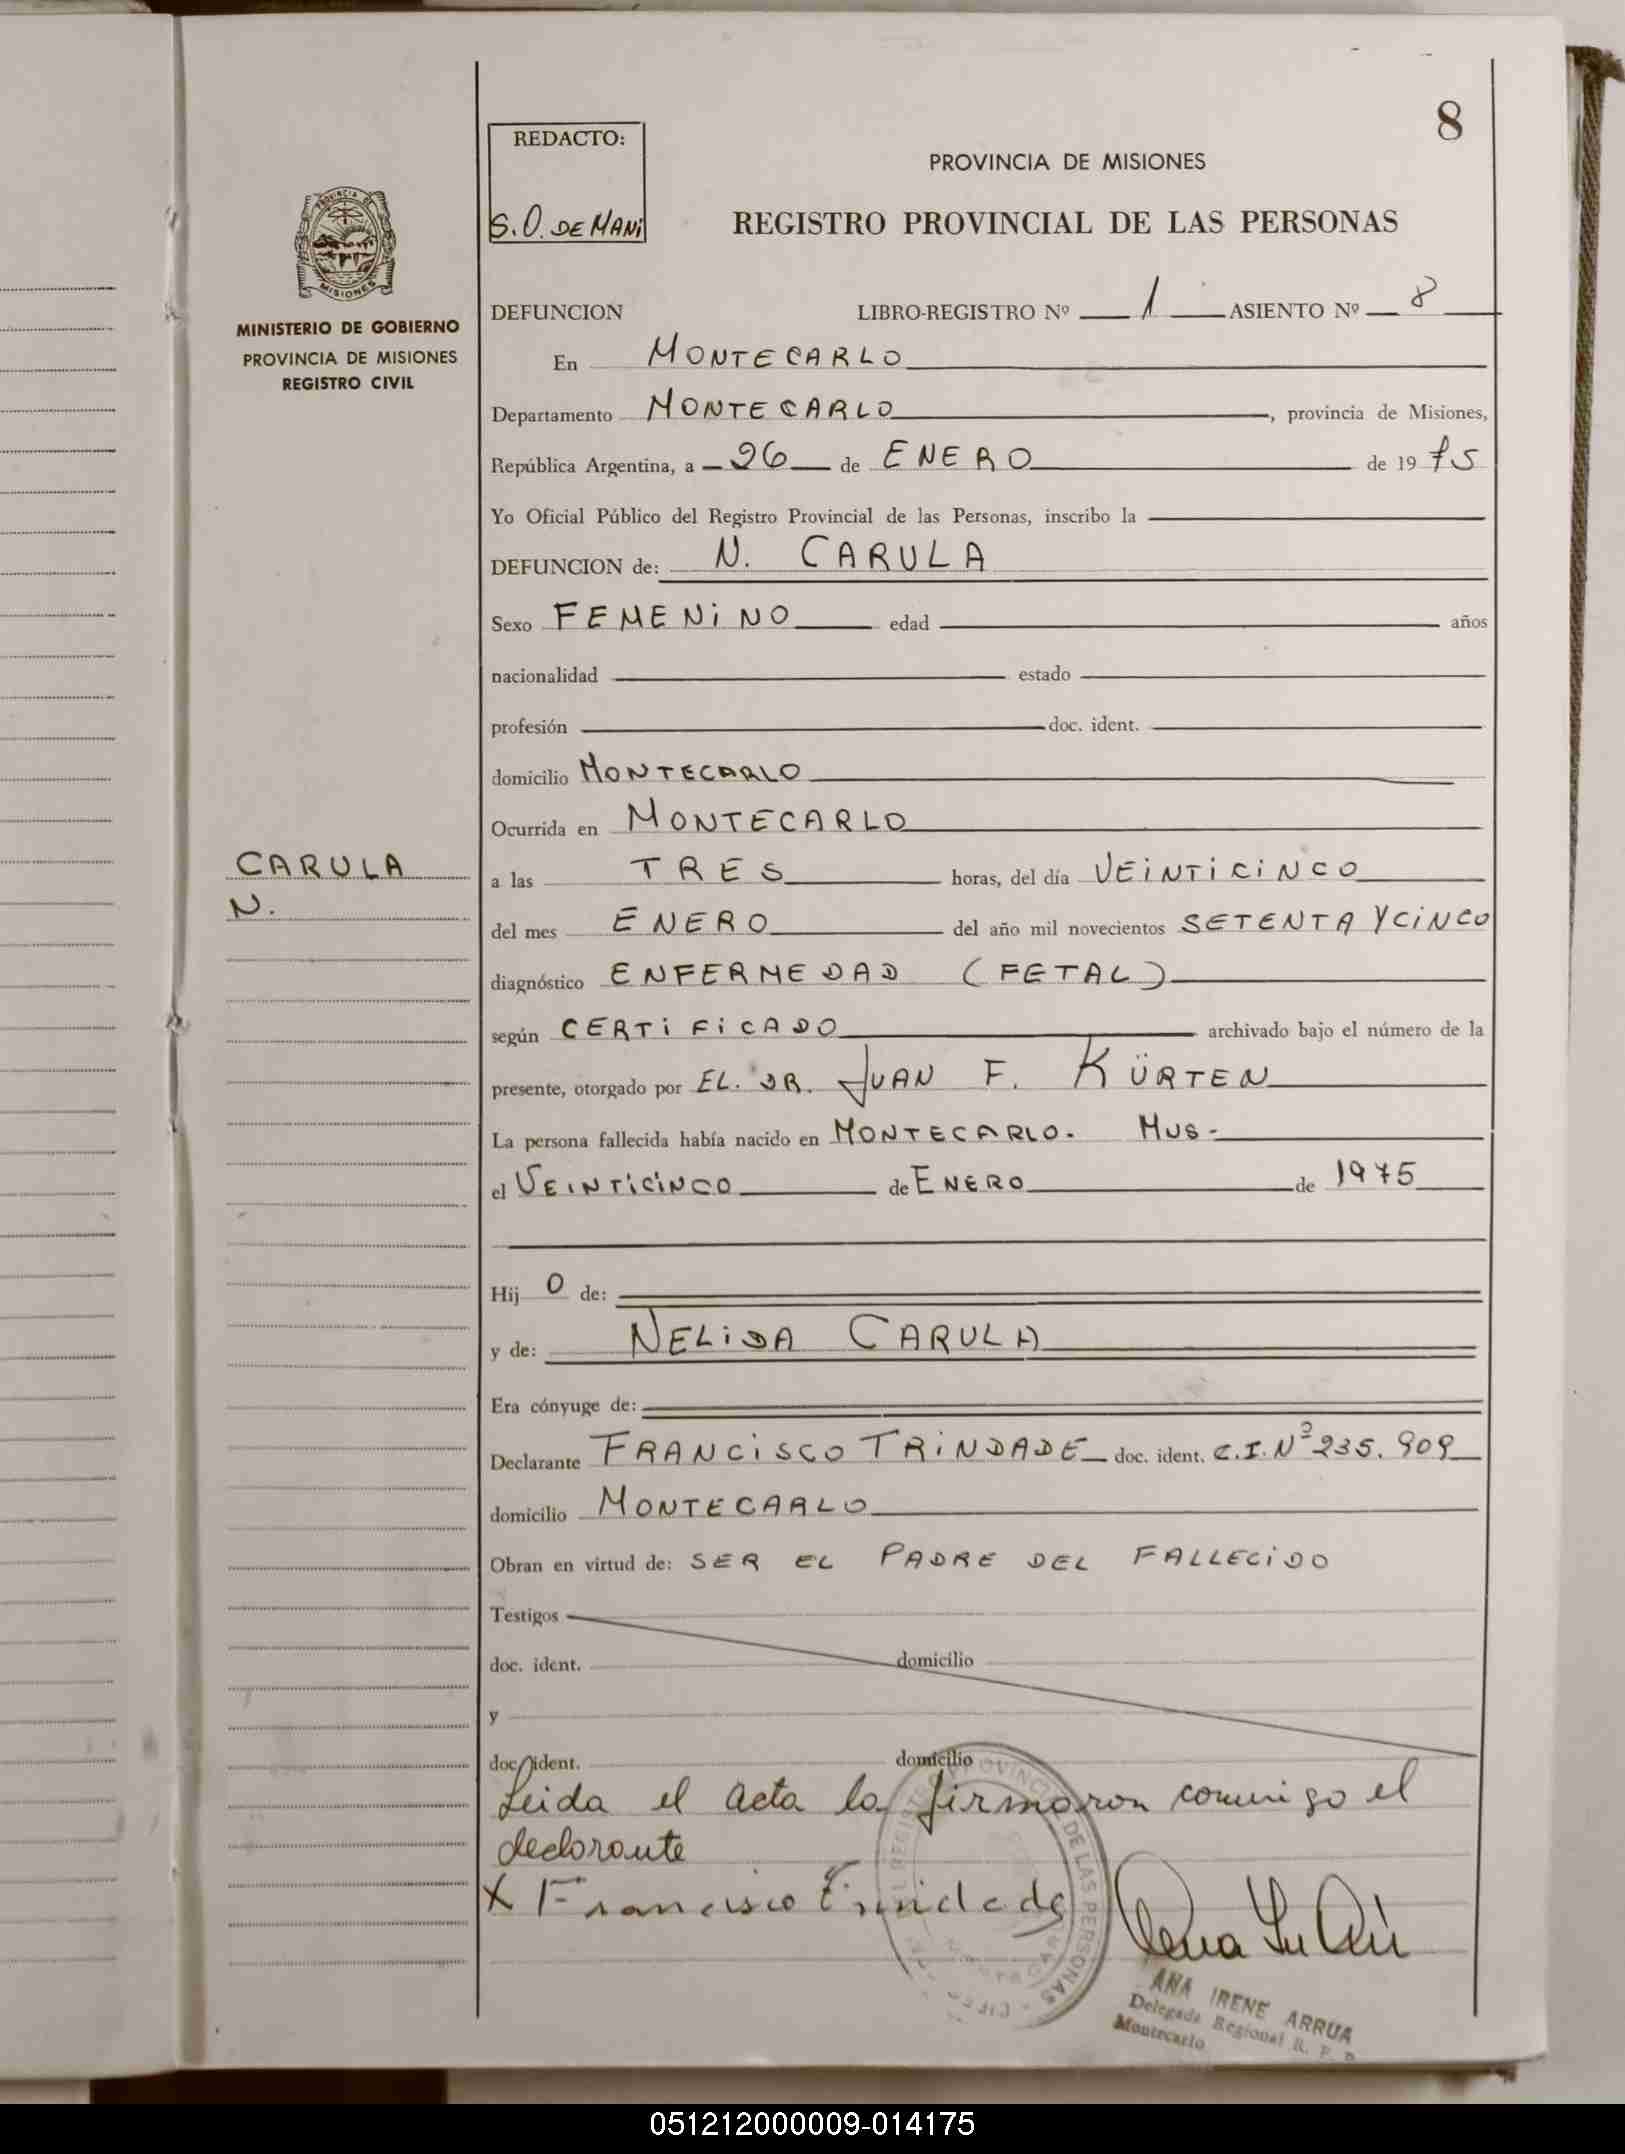 8
REDACTO:
S.O. DE MANi
PROVINCIA DE MISIONES
REGISTRO PROVINCIAL DE LAS PERSONAS
PROVINCIA DE
MISIONES
MINISTERIO DE GOBIERNO
PROVINCIA DE MISIONES
REGISTRO CIVIL
DEFUNCION LIBRO-REGISTRO Nº 1 ASIENTO Nº 8
En MONTECARLO
Departamento MONTECARLO, provincia de Misiones,
República Argentina, a 26 de ENERO de 19 75
Yo Oficial Público del Registro Provincial de las Personas, inscribo la
DEFUNCION de: N. CARULA
Sexo FEMENiNO edad años
nacionalidad estado
profesión doc. ident.
domicilio MONTECARLO
Ocurrida en MONTECARLO
CARULA
N.
a las TRES horas, del día VEiNTiCiNCO
del mes ENERO del año mil novecientos SETENTA Y CiNCO
diagnóstico ENFERMEDAD (FETAL)
según CERTiFiCADO archivado bajo el número de la
presente, otorgado por EL. DR. JUAN F. KÜRTEN
La persona fallecida había nacido en MONTECARLO. MNS-
el VEINTiCiNCO de ENERO de 1975
Hij O de:
y de: NELiDA CARULA
Era cónyuge de:
Declarante FRANCiSCO TRiNDADE doc. ident. C.I. Nº 235.909
domicilio MONTECARLO
Obran en virtud de: SER EL PADRE DEL FALLECiDO
Testigos
doc. ident. domicilio
y
doc. ident. domicilio
Leida el acta la firmaron conmigo el
declarante
X Francisco Trindade
REGISTRO PROVINCIAL DE LAS PERSONAS
ANA IRENE ARRUA
Delegada Regional R. P. P.
Montecarlo
051212000009-014175